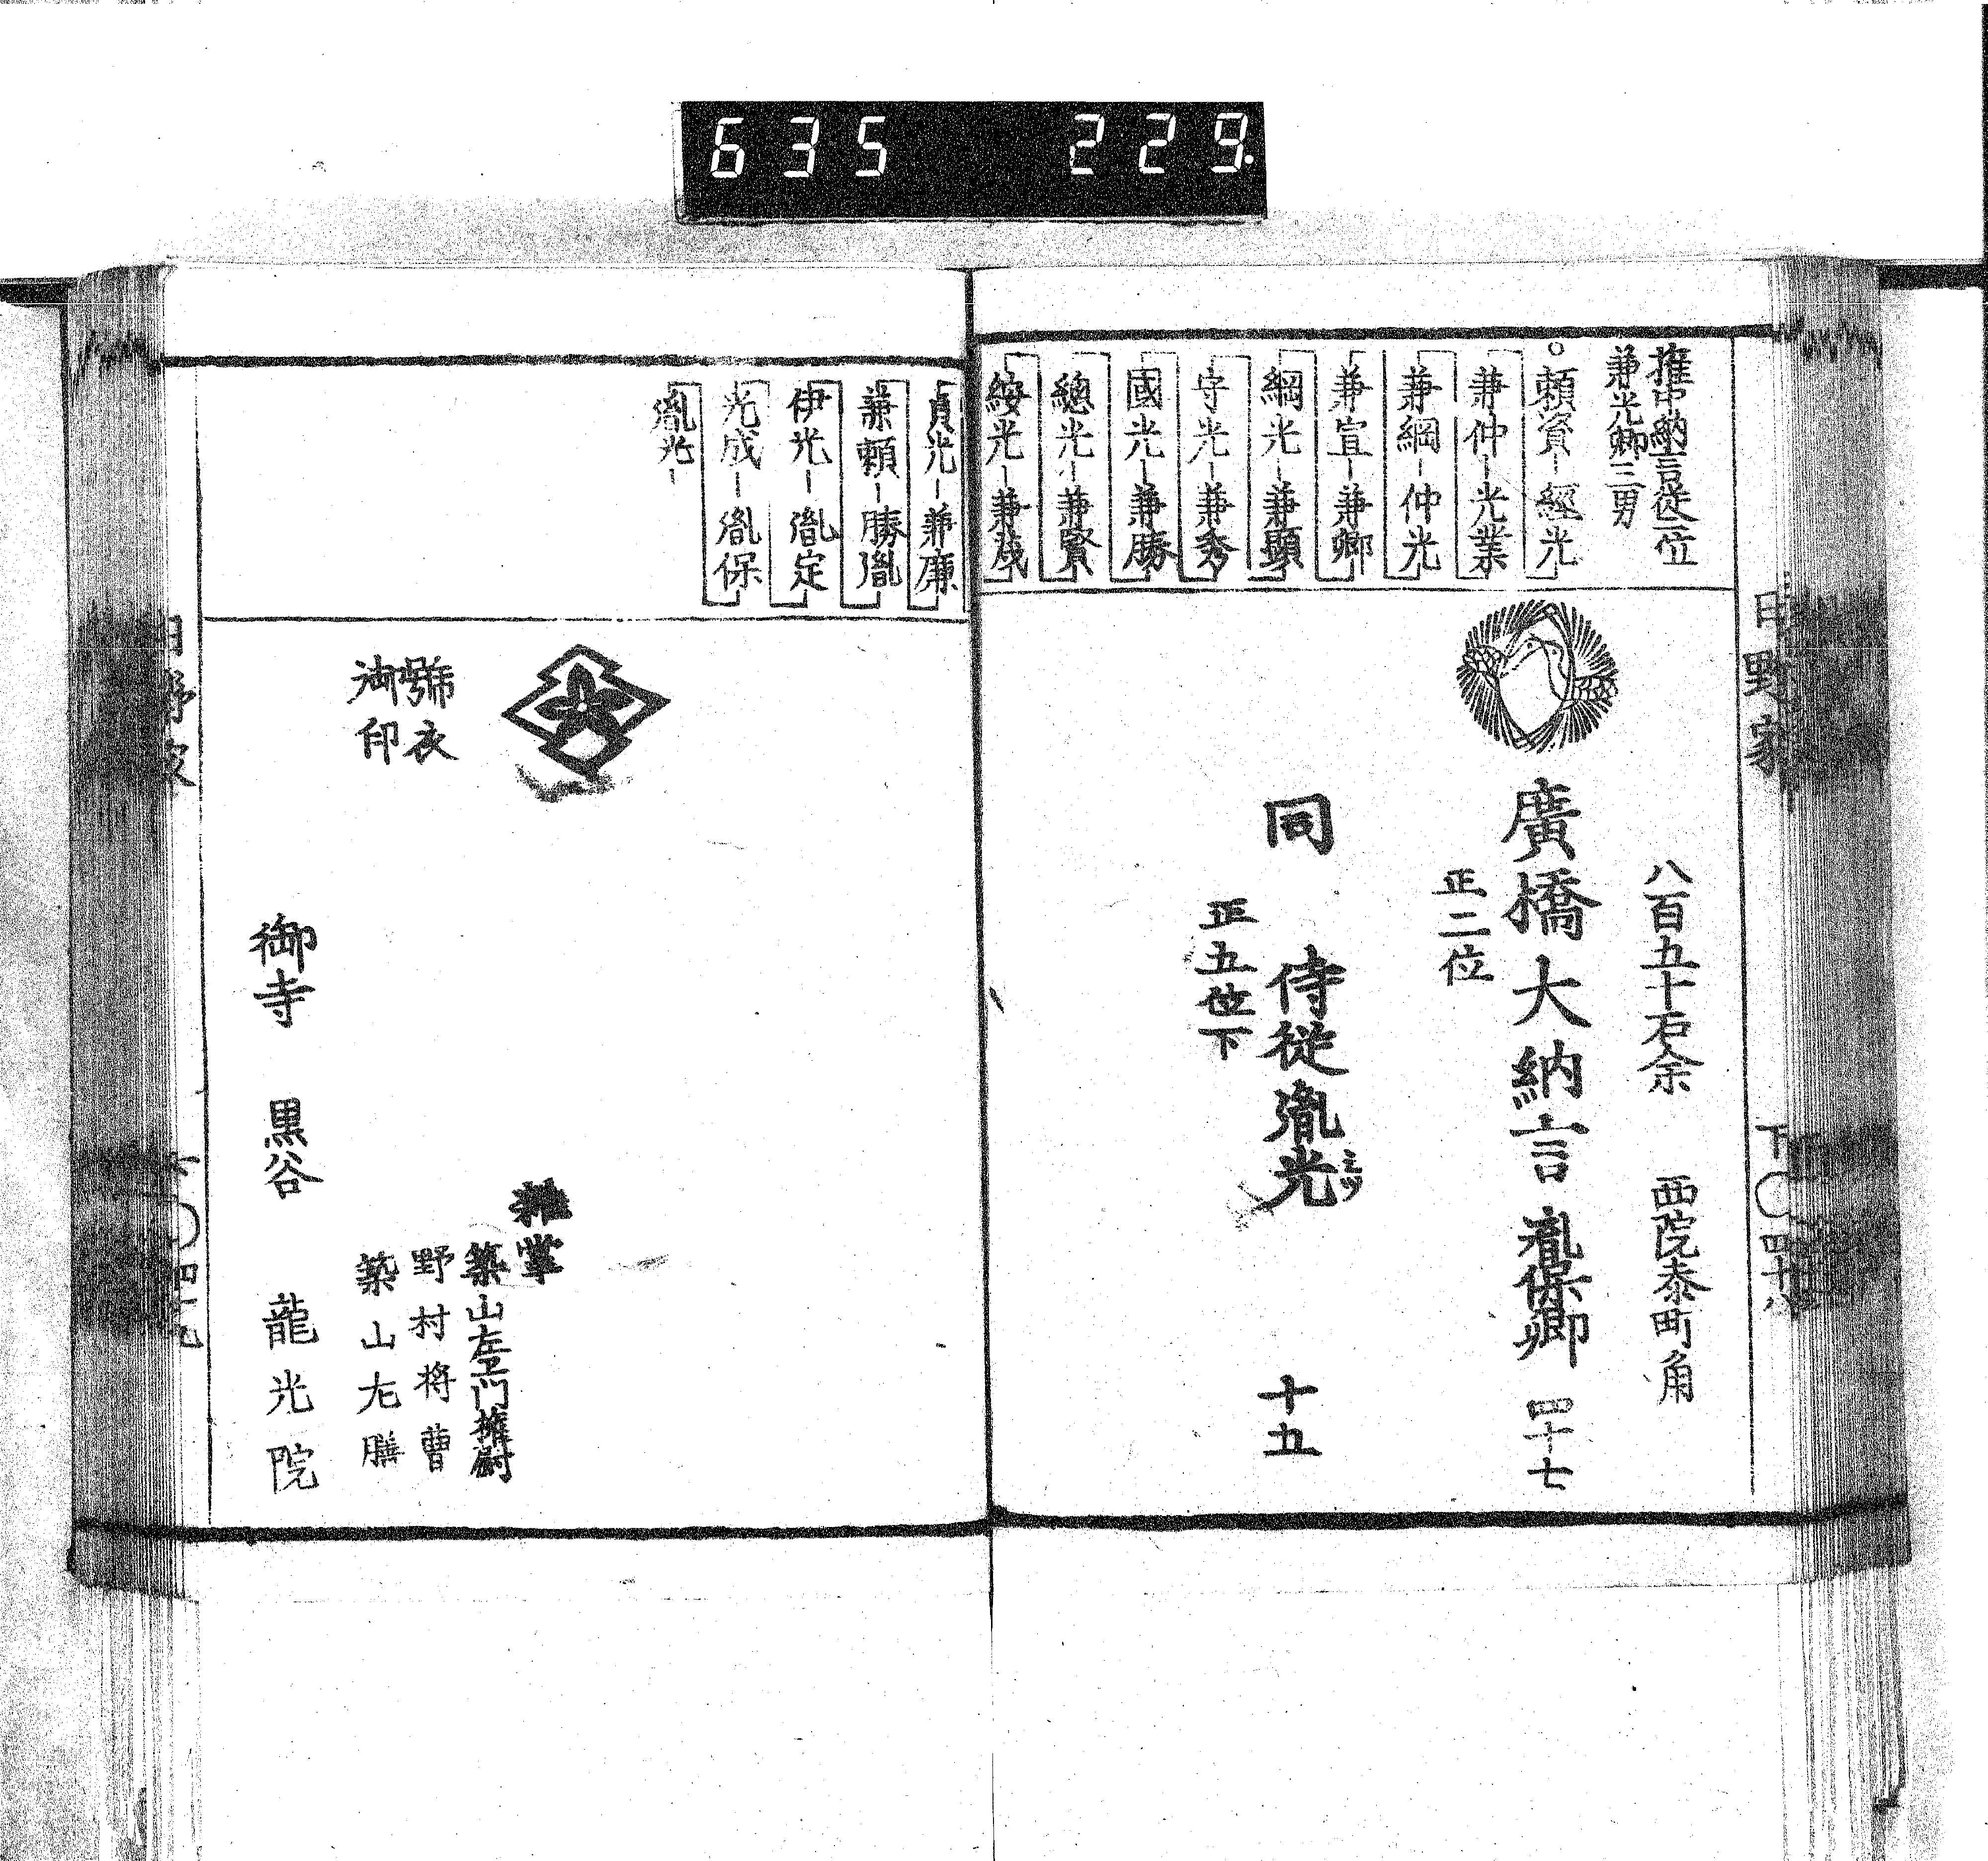 635 229.
日野家
下〇四十八
権中納言従一位
兼光卿三男
〇頼資-經光
兼仲-光業
兼綱-仲光
兼宣-兼郷
綱光-兼顯
守光-兼秀
國光-兼勝
總光-兼賢
綏光-兼茂
八百五十石余 西院参町角
廣橋大納言胤保卿 四十七
正二位
同 侍従胤光 ミツ 十五
正五位下
貞光-兼廉
兼頼-勝胤
伊光-胤定
光成-胤保
胤光-
號衣
御印
雑掌
築山左卫门権尉
野村将曹
築山左膳
御寺 黒谷 龍光院
日野家
下〇四十九